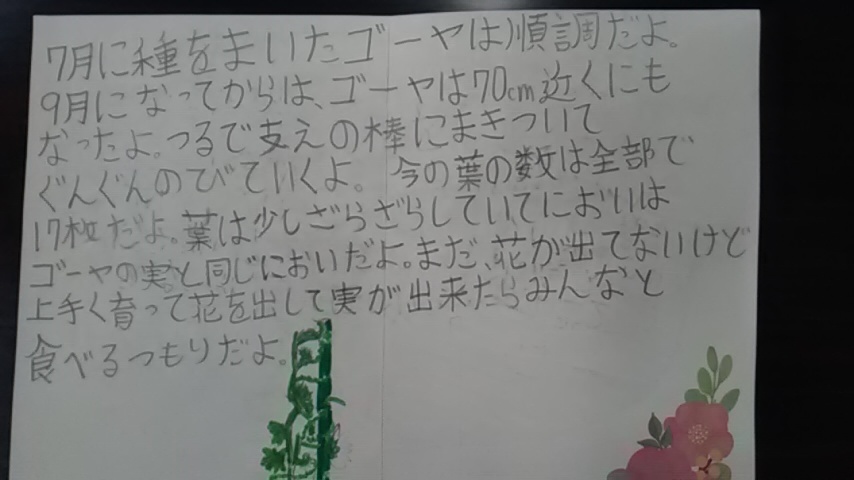 7月に種をまいたゴーヤは順調だよ。
9月になってからは、ゴーヤは70cm近くにも
なったよ。つるで支えの棒にまきついて
ぐんぐんのびていくよ。今の葉の数は全部で
17枚だよ。葉は少しざらざらしていてにおいは
ゴーヤの実と同じにおいだよ。まだ、花が出てないけど
上手く育って花を出して実が出来たらみんなと
食べるつもりだよ。